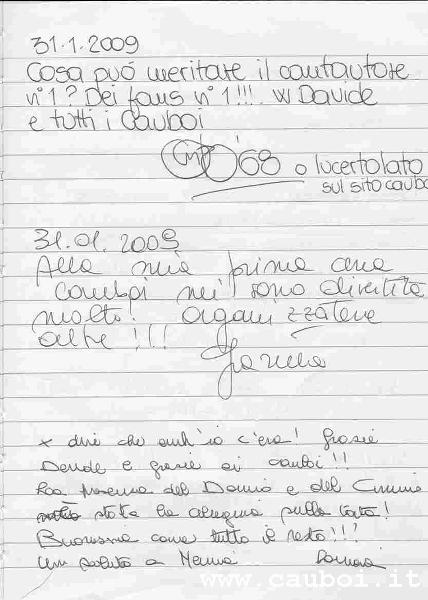 31.1.2009
Cosa può meritare il cantautore
n°1? Dei fans n°1!!! W Davide
e tutti i Cauboi
'68 o lucertolato
sul sito caubo
31.01.2009
Alla mia prima cena
cauboi mi sono divertita
molto! Organizzatene
altre!!!
x dire che anch'io c'ero! Grazie
Davide e grazie ai cauboi!!
La presenza del Danio e del
è stata la ciliegina sulla torta!
Buonissima come tutto il resto!!!
Un saluto a
www.cauboi.it